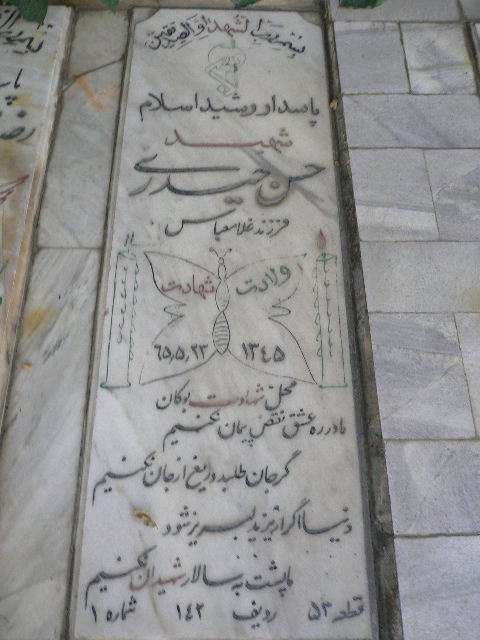 بسم رب الشهدا و الصدیقین
پاسدار رشید اسلام
شهید
حسن حیدری
فرزند غلامعباس
ولادت شهادت
۱۳۴۵ ۶۵،۵،۲۳
محل شهادت بوکان
مادر ره عشق نقض پیمان نکنیم
گر جان طلبد دریغ از جان نکنیم
دنیا اگر از یزید لبریز شود
ما پشت به سالار شهیدان نکنیم
قطعه ۵۳ ردیف ۱۴۲ شماره ۱